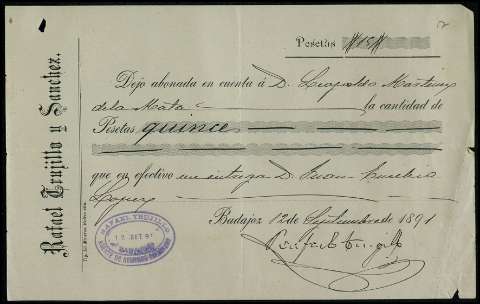 Pesetas #15#
Dejo abonada en cuenta á D. Leopoldo Martinez
de la Mata la cantidad de
Pesetas quince
que en efectivo me entrega D. Juan Eusebio
Lopez
Badajoz 12 de Septiembre de 1891
Rafael Trujillo
Rafael Trujillo y Sanchez.
RAFAEL TRUJILLO
12 SET. 91
BADAJOZ